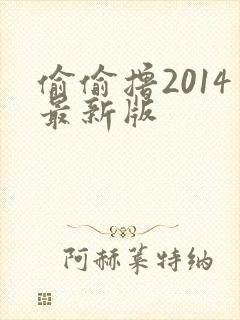 偷偷撸2014
最新版
阿赫莱特纳